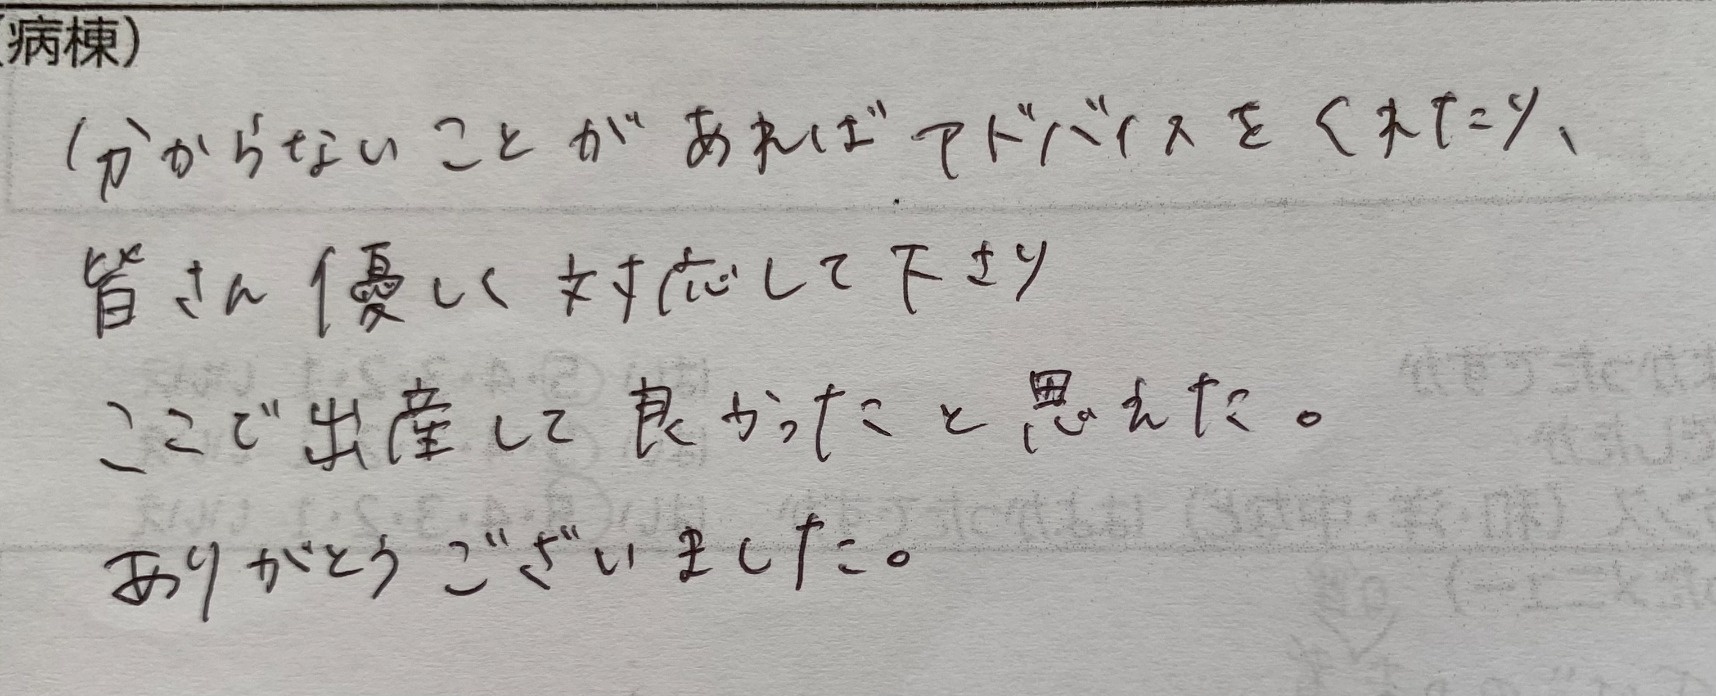 (病棟)
分からないことがあればアドバイスをくれたり、
皆さん優しく対応して下さり
ここで出産して良かったこと思えた。
ありがとうございました。